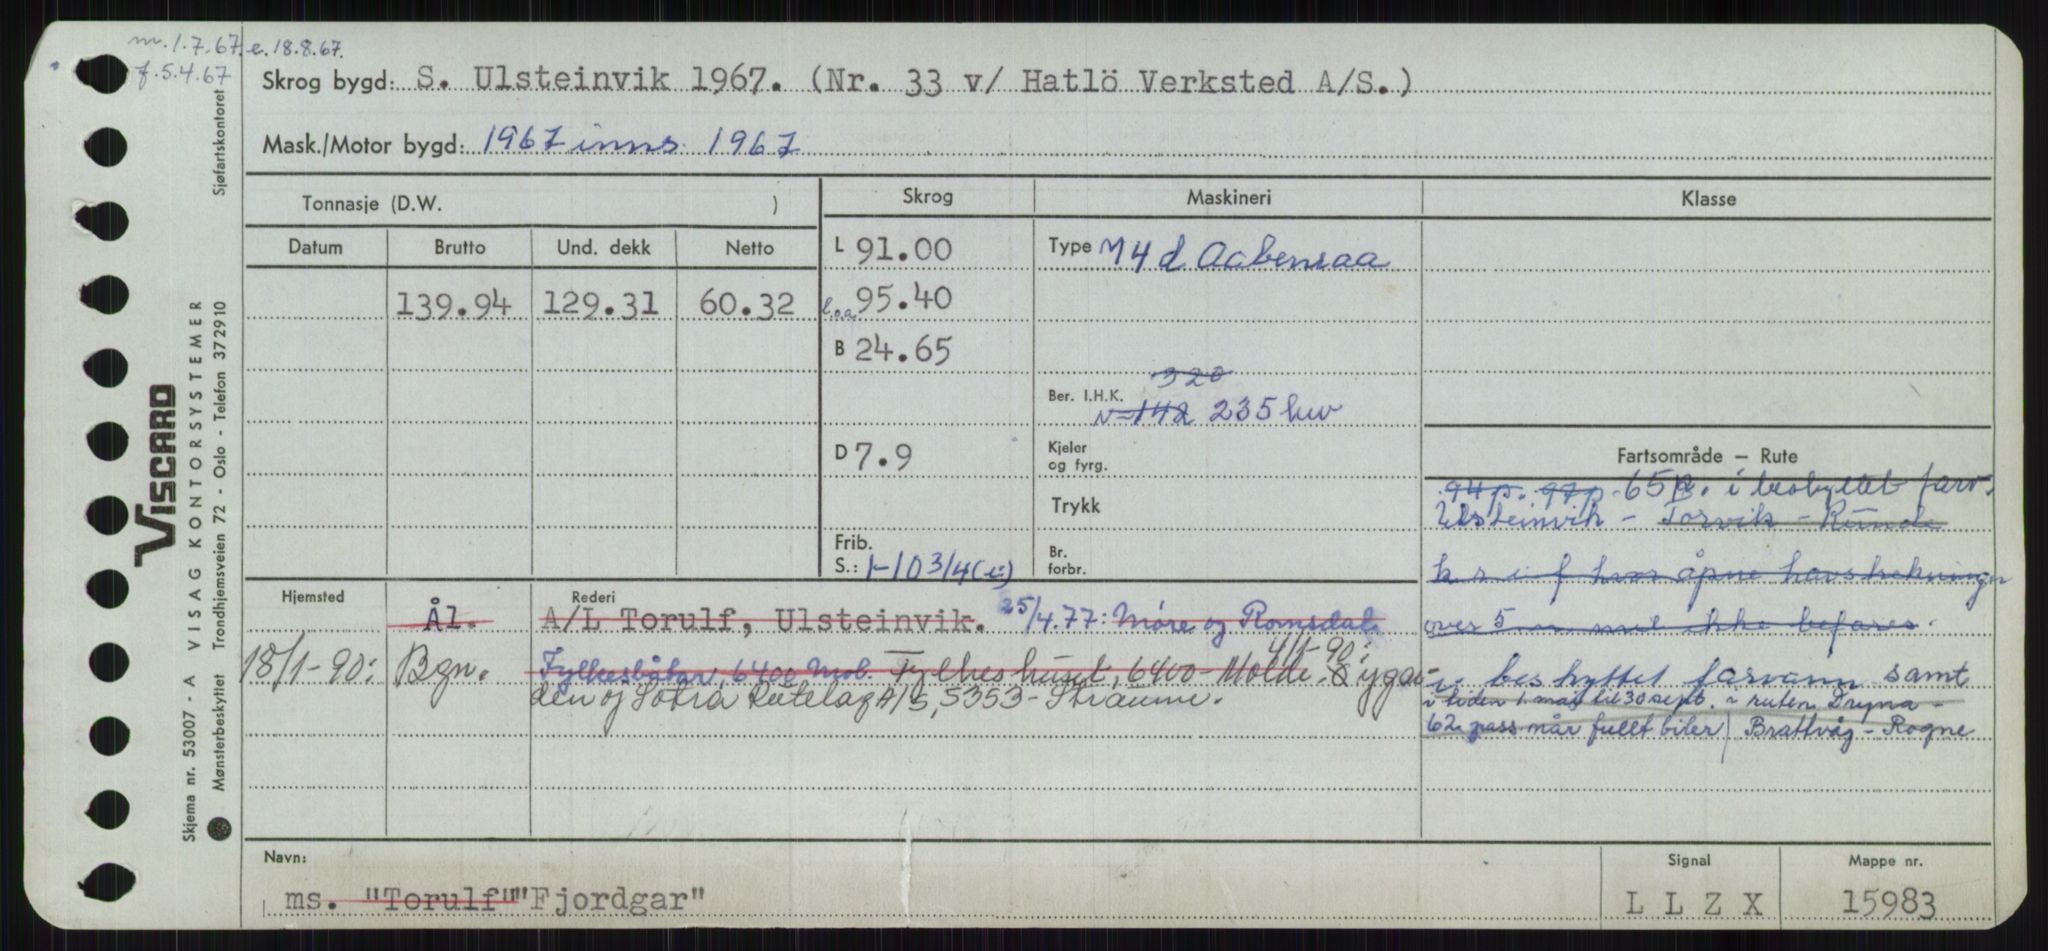 m. 1.7.67. e. 18.8.67.
f. 5.4.67
Skrog bygd: S. Ulsteinvik 1967. (Nr. 33 v/ Hatlö Verksted A/S.)
Mask./Motor bygd: 1967 inns. 1967
Tonnasje (D.W. ) Skrog Maskineri Klasse
Datum Brutto Und. dekk Netto
L 91.00 Type M 4 d Aabenraa
139.94 129.31 60.32 l.o.a. 95.40
B 24.65
320
Ber. I.H.K. 142 235 hw
D 7.9 Kjeler og fyrg.
Fartsområde — Rute
Trykk
94 p. 97 p. 65 p. i beskyttet farv.
Ulsteinvik - Torvik - Runde
Frib. S.: 1-10 3/4 (i) Br. forbr.
k s i f hvor åpne havstrekninger
over 5 n mil ikke befares.
Hjemsted Rederi
Ål. A/L Torulf, Ulsteinvik. 25/4.77: Møre og Romsdal
18/1-90: Bgn. Fylkesbåtar, 6400 Mob. Fylkeshuset, 6400-Molde. 4/1-90: Bygda-
den og Sotra Rutelag A/S, 5353-Straume.
i beskyttet farvann samt
i tiden 1. mai til 30 sept. i ruten Dryna -
62 pass når fullt biler / Brattvåg - Rogne
Navn: Signal Mappe nr.
ms. "Torulf" "Fjordgar" L L Z X 15983
Sjøfartskontoret
VISCARD
Skjema nr. 53007 - A VISAG KONTORSYSTEMER
Mønsterbeskyttet Trondhjemsveien 72 - Oslo - Telefon 372910